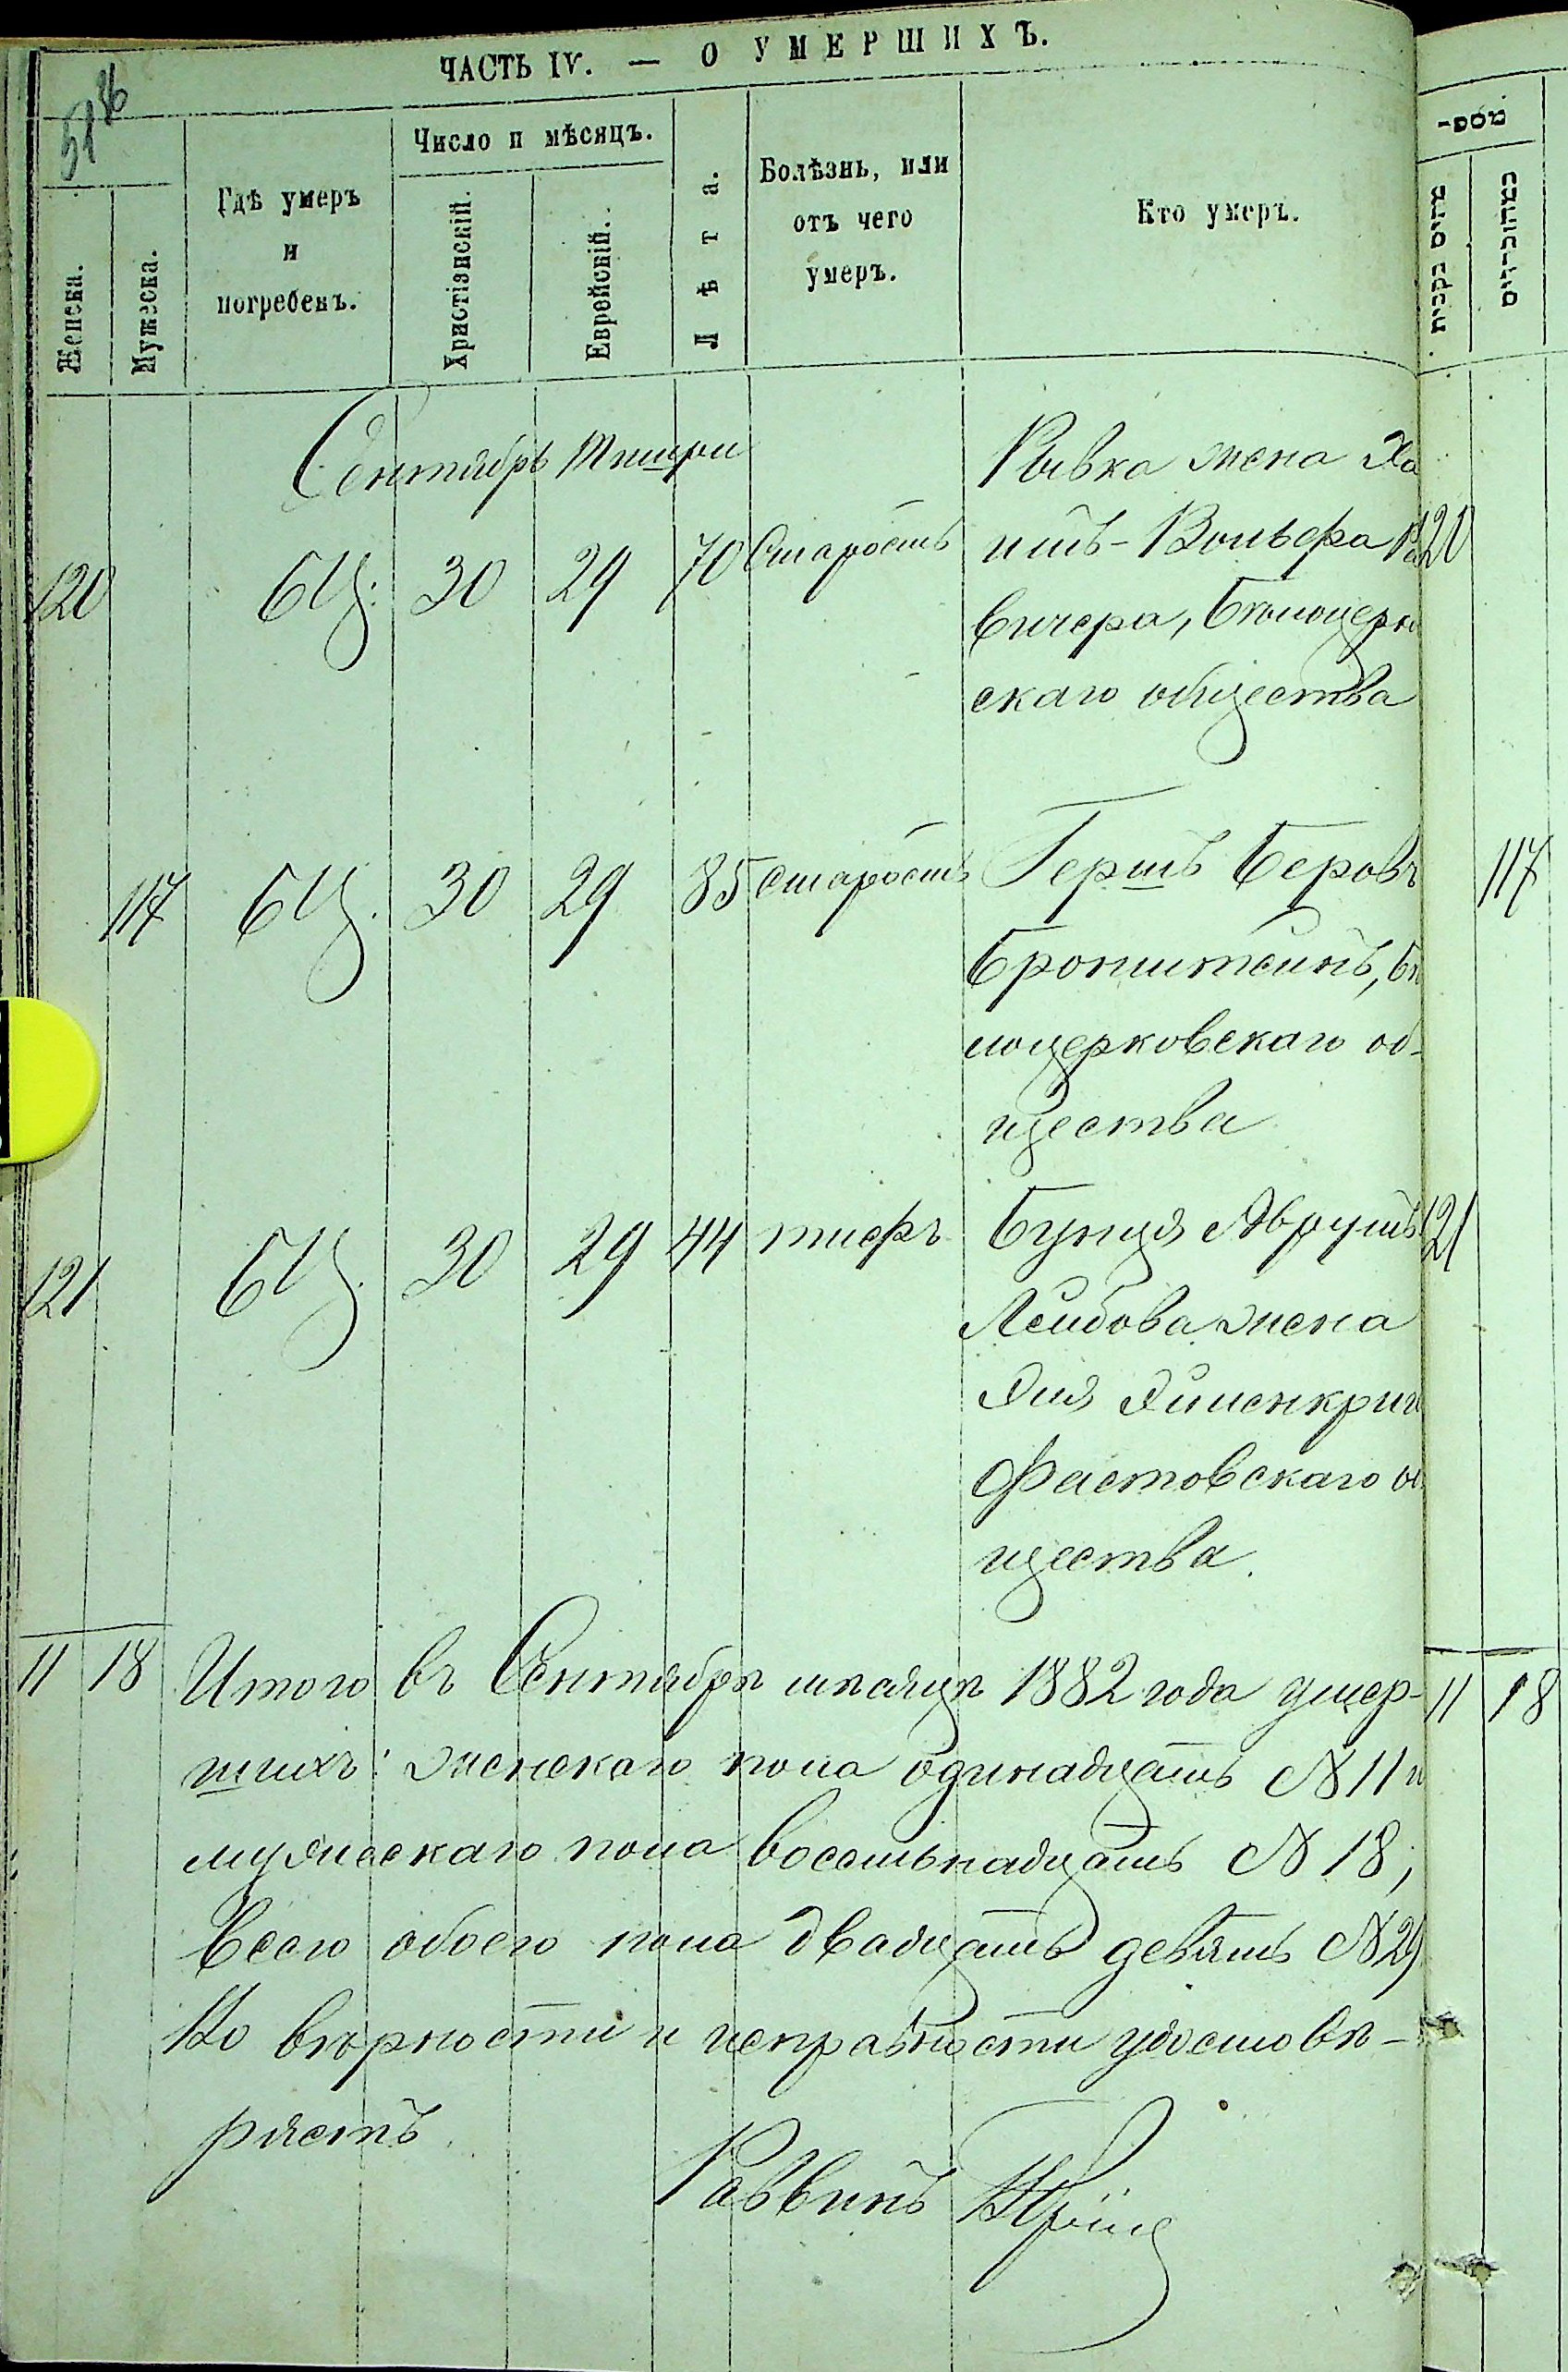 ЧАСТЬ IV. — О УМЕРШИХЪ.
5186
Женска.
Мужеска.
Гдѣ умеръ
и
погребенъ.
Число и мѣсяцъ.
Христіянскій.
Еврейскій.
Лѣта.
Болѣзнь, или
отъ чего
умеръ.
Кто умеръ.
Сентябрь Тишри
Рывка жена Ха
120 БЦ: 30 29 70 Старость имъ-Вольфа Ра
вичера, Бѣлоцерко
скаго общества
117 БЦ. 30 29 85 старость Гершъ Беровъ
Бронштейнъ, Бѣ
лоцерковскаго об-
щества
121 БЦ. 30 29 44 тифъ Бунця Аврумъ
Лейбова жена
Фастовскаго об
щества.
11 18 Итого въ Сентябрѣ мѣсяцѣ 1882 года умер-
шихъ: женскаго пола одинадцать № 11 и
мужескаго пола восемьнадцать № 18,
Всего обоего пола двадцать девять № 29
Ко вѣрности и исправности удостовѣ-
ряетъ
Раввинъ
מספ-
מהים נקבות
מהזכרים
120
117
121
11 18